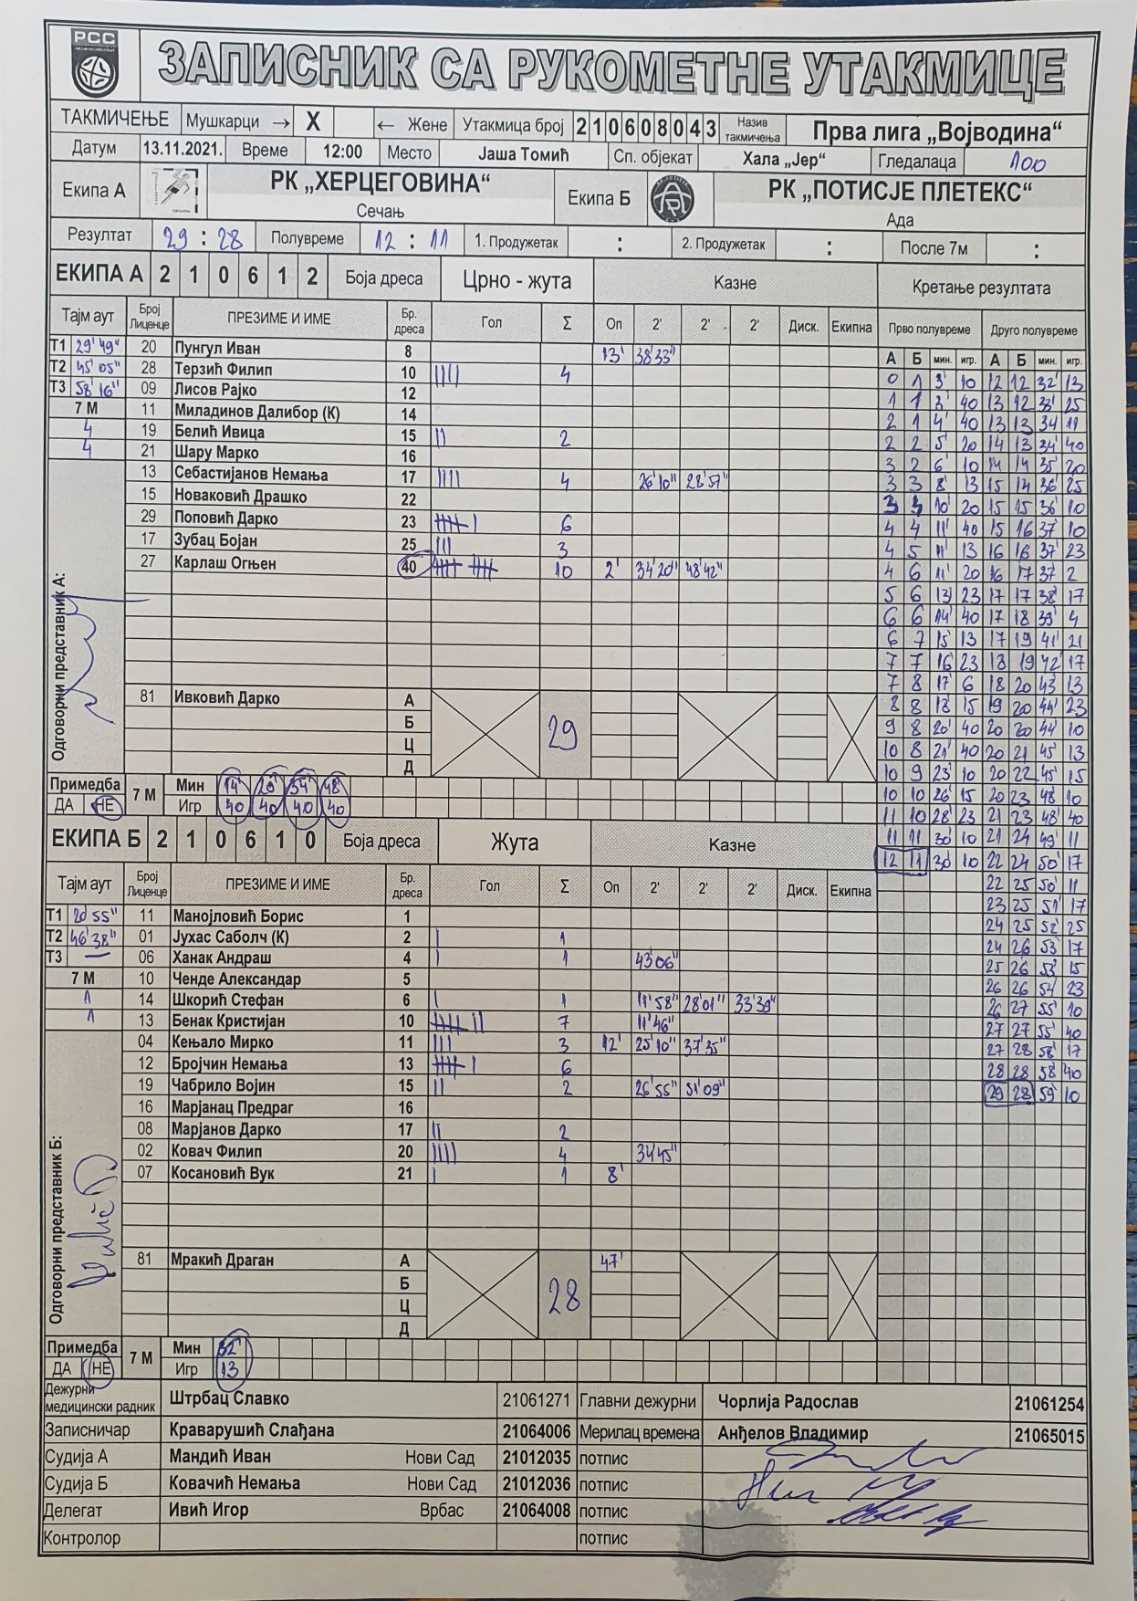 РСС
ЗАПИСНИК СА РУКОМЕТНЕ УТАКМИЦЕ
ТАКМИЧЕЊЕ Мушкарци → X ← Жене Утакмица број 210608043 Назив такмичења Прва лига „Војводина“
Датум 13.11.2021. Време 12:00 Место Јаша Томић Сп. објекат Хала „Јер“ Гледалаца 100
Екипа А РК „ХЕРЦЕГОВИНА“ Сечањ Екипа Б РК „ПОТИСЈЕ ПЛЕТЕКС“ Ада
Резултат 29 : 28 Полувреме 12 : 11 1. Продужетак : 2. Продужетак : После 7м :
ЕКИПА А 2 1 0 6 1 2 Боја дреса Црно - жута Казне Кретање резултата
Тајм аут Број Лиценце ПРЕЗИМЕ И ИМЕ Бр. дреса Гол Σ Оп 2' 2' 2' Диск. Екипна Прво полувреме Друго полувреме
А Б мин. игр. А Б мин. игр.
Т1 29'49" 20 Пунгул Иван 8 13' 38'33"
Т2 45'05" 28 Терзић Филип 10 |||| 4
Т3 58'16" 09 Лисов Рајко 12
7 М 11 Миладинов Далибор (К) 14
4 19 Белић Ивица 15 || 2
4 21 Шару Марко 16
13 Себастијанов Немања 17 |||| 4 26'10" 28'57"
15 Новаковић Драшко 22
29 Поповић Дарко 23 6
17 Зубац Бојан 25 ||| 3
27 Карлаш Огњен 40 10 2' 34'20" 48'42"
Одговорни представник А:
81 Ивковић Дарко А 29
Б
Ц
Д
Примедба 7 М Мин 14' 20' 34' 48'
ДА НЕ Игр 40 40 40 40
0 1 3' 10 12 12 32' 13
1 1 3' 40 13 12 33' 25
2 1 4' 40 13 13 34 11
2 2 5' 20 14 13 34' 40
3 2 6' 10 14 14 35' 20
3 3 8' 13 15 14 36' 25
3 3 10' 20 15 15 36' 10
4 4 11' 40 15 16 37' 10
4 5 11' 13 16 16 37' 23
4 6 11' 20 16 17 37' 2
5 6 13' 23 17 17 38' 17
6 6 14' 40 17 18 39' 4
6 7 15' 13 17 19 41' 21
7 7 16' 23 18 19 42' 17
7 8 17' 6 18 20 43' 13
8 8 18' 15 19 20 44' 23
9 8 20' 40 20 20 44' 10
10 8 21' 40 20 21 45' 13
10 9 23' 10 20 22 45' 15
10 10 26' 15 20 23 48' 10
11 10 28' 23 21 23 48' 40
11 11 30' 10 21 24 49' 11
12 11 30' 10 22 24 50' 17
22 25 50' 11
23 25 51' 17
24 25 52' 25
24 26 53' 17
25 26 53' 15
26 26 54' 23
26 27 55' 10
27 27 55' 40
27 28 58' 17
28 28 58' 40
29 28 59' 10
ЕКИПА Б 2 1 0 6 1 0 Боја дреса Жута Казне
Тајм аут Број Лиценце ПРЕЗИМЕ И ИМЕ Бр. дреса Гол Σ Оп 2' 2' 2' Диск. Екипна
Т1 20'55" 11 Манојловић Борис 1
Т2 46'38" 01 Јухас Саболч (К) 2 | 1
Т3 — 06 Ханак Андраш 4 | 1 43'06"
7 М 10 Ченде Александар 5
1 14 Шкорић Стефан 6 | 1 11'58" 28'01" 33'39"
1 13 Бенак Кристијан 10 7 11'46"
04 Кењало Мирко 11 ||| 3 12' 25'10" 37'35"
12 Бројчин Немања 13 6
19 Чабрило Војин 15 || 2 26'55" 51'09"
16 Марјанац Предраг 16
08 Марјанов Дарко 17 || 2
02 Ковач Филип 20 |||| 4 34'45"
07 Косановић Вук 21 | 1 8'
Одговорни представник Б:
81 Мракић Драган А 28 47'
Б
Ц
Д
Примедба 7 М Мин 32'
ДА НЕ Игр 13
Дежурни медицински радник Штрбац Славко 21061271 Главни дежурни Чорлија Радослав 21061254
Записничар Краварушић Слађана 21064006 Мерилац времена Анђелов Владимир 21065015
Судија А Мандић Иван Нови Сад 21012035 потпис
Судија Б Ковачић Немања Нови Сад 21012036 потпис
Делегат Ивић Игор Врбас 21064008 потпис
Контролор потпис